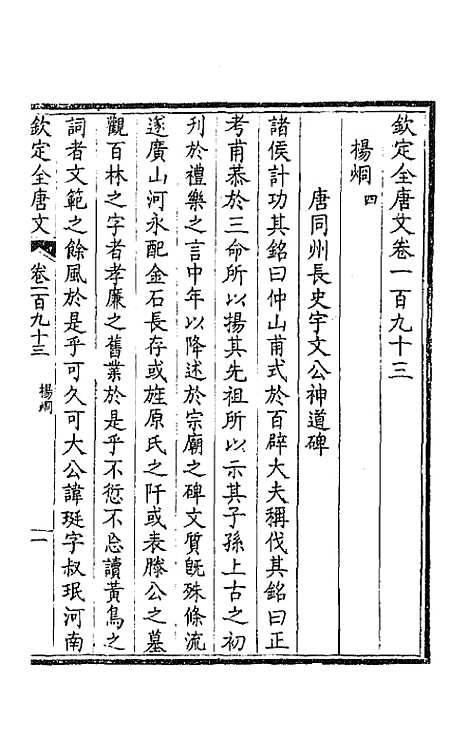 欽定全唐文卷一百九十三
楊炯四
唐同州長史宇文公神道碑
諸侯計功其銘曰仲山甫式於百辟大夫稱伐其銘曰正
考甫恭於三命所以揚其先祖所以示其子孫上古之初
刋於禮樂之言中年以降述於宗廟之碑文質旣殊條流
遂廣山河永配金石長存或旌原氏之阡或表滕公之墓
觀百林之字者孝廉之舊業於是乎不愆不忘讀黃鳥之
詞者文範之餘風於是乎可久可大公諱珽字叔珉河南
欽定全唐文 卷一百九十三 楊炯 一